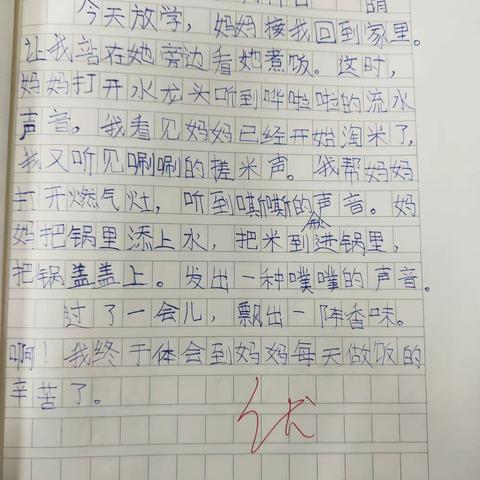 晴
今天放学，妈妈接我回到家里。
让我站在她旁边看她煮饭。这时，
妈妈打开水龙头听到哗啦啦的流水
声音。我看见妈妈已经开始淘米了，
我又听见唰唰的搓米声。我帮妈妈
打开燃气灶，听到嘶嘶的声音。妈
妈把锅里添上水，把米到进锅里，
把锅盖盖上。发出一种噗噗的声音。
过了一会儿，飘出一阵香味。
啊！我终于体会到妈妈每天做饭的
辛苦了。
优